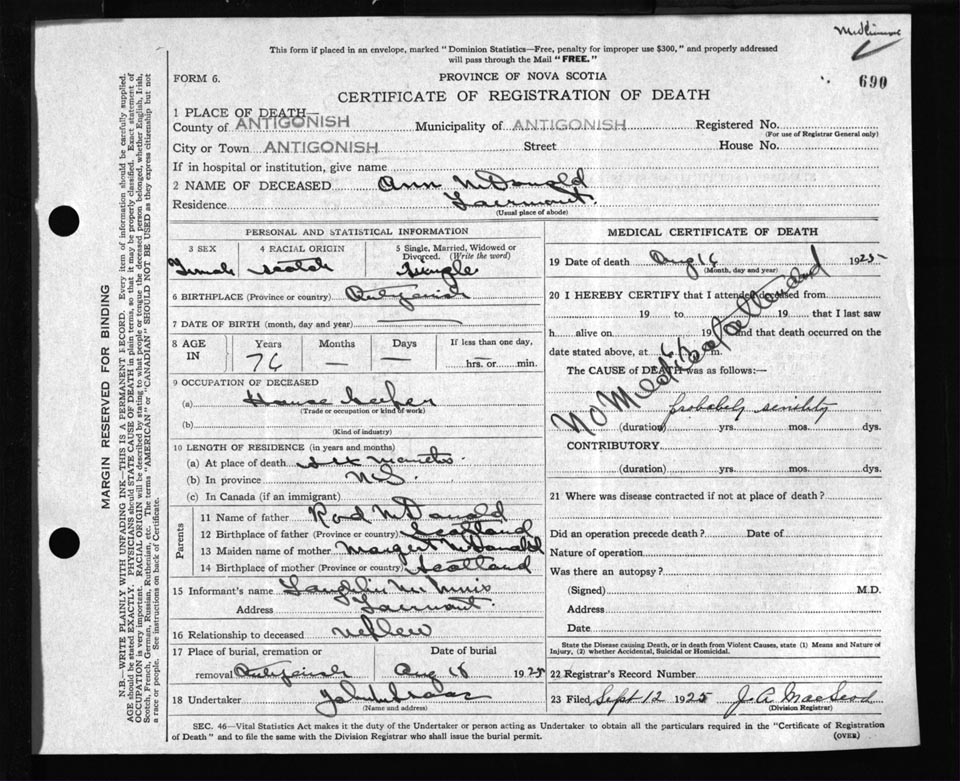 This form if placed in an envelope, marked "Dominion Statistics—Free, penalty for improper use $300," and properly addressed
will pass through the Mail "FREE."
FORM 6.
PROVINCE OF NOVA SCOTIA
690
CERTIFICATE OF REGISTRATION OF DEATH
1 PLACE OF DEATH—
County of ANTIGONISH Municipality of ANTIGONISH Registered No.
(For use of Registrar General only)
City or Town ANTIGONISH Street House No.
If in hospital or institution, give name
2 NAME OF DECEASED Ann McDonald
Residence Fairmont.
(Usual place of abode)
PERSONAL AND STATISTICAL INFORMATION
3 SEX 4 RACIAL ORIGIN 5 Single, Married, Widowed or
Divorced. (Write the word)
Female Scotch Single
6 BIRTHPLACE (Province or country) Antigonish
7 DATE OF BIRTH (month, day and year) —
8 AGE IN Years Months Days If less than one day,
76 — — hrs. or min.
9 OCCUPATION OF DECEASED
(a) House keeper
(Trade or occupation or kind of work)
(b)
(Kind of industry)
10 LENGTH OF RESIDENCE (in years and months)
(a) At place of death
(b) In province N.S.
(c) In Canada (if an immigrant)
Parents
11 Name of father Rod McDonald
12 Birthplace of father (Province or country) Scotland
13 Maiden name of mother Margert McDonald
14 Birthplace of mother (Province or country) Scotland
15 Informant's name Laughlin McInnis
Address Fairmont.
16 Relationship to deceased Nephew
17 Place of burial, cremation or Date of burial
removal Antigonish Aug 18 1925
18 Undertaker
(Name and address)
MEDICAL CERTIFICATE OF DEATH
19 Date of death Aug 16 1925
(Month, day and year)
20 I HEREBY CERTIFY that I attended deceased from
19 to 19 that I last saw
h alive on 19 and that death occurred on the
date stated above, at m.
The CAUSE of DEATH was as follows:—
No Medical attendant
probably senility
(duration) yrs. mos. dys.
CONTRIBUTORY
(duration) yrs. mos. dys.
21 Where was disease contracted if not at place of death?
Did an operation precede death? Date of
Nature of operation
Was there an autopsy?
(Signed) M.D.
Address
Date
State the Disease causing Death, or in death from Violent Causes, state (1) Means and Nature of
Injury, (2) whether Accidental, Suicidal or Homicidal.
22 Registrar's Record Number
23 Filed Sept 12 1925 J. A. MacLeod
(Division Registrar)
SEC. 46—Vital Statistics Act makes it the duty of the Undertaker or person acting as Undertaker to obtain all the particulars required in the "Certificate of Registration
of Death" and to file the same with the Division Registrar who shall issue the burial permit.
(OVER)
MARGIN RESERVED FOR BINDING
N.B.—WRITE PLAINLY WITH UNFADING INK—THIS IS A PERMANENT RECORD. Every item of information should be carefully supplied.
AGE should be stated EXACTLY. PHYSICIANS should STATE CAUSE OF DEATH in plain terms, so that it may be properly classified. Exact statement of
OCCUPATION is very important. RACIAL ORIGIN will be described by stating to what people or tongue the deceased person belonged, whether English, Irish,
Scotch, French, German, Russian, Ruthenian, etc. The terms "AMERICAN" or "CANADIAN" SHOULD NOT BE USED as they express citizenship but not
a race or people. See instructions on back of Certificate.